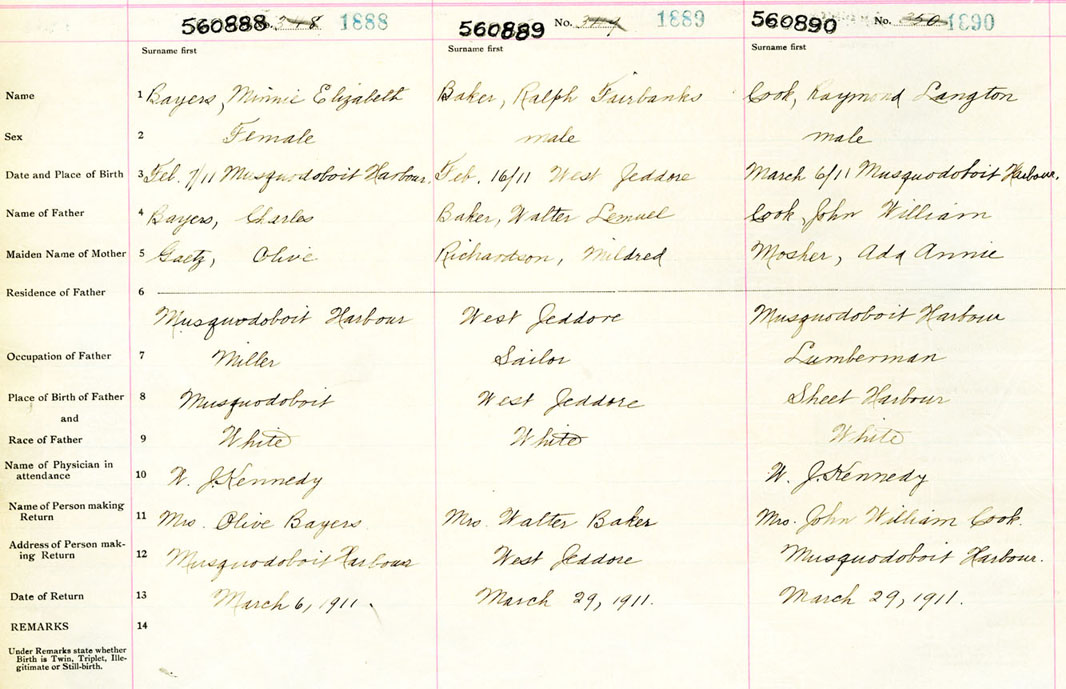 560888 No. 348 1888 560889 No. 1889 560890 No. 350 1890
Surname first Surname first Surname first
Name 1 Bayers, Minnie Elizabeth Baker, Ralph Fairbanks Cook, Raymond Langton
Sex 2 Female male male
Date and Place of Birth 3 Feb. 7/11 Musquodoboit Harbour. Feb. 16/11 West Jeddore March 6/11 Musquodoboit Harbour.
Name of Father 4 Bayers, Charles Baker, Walter Lemuel Cook, John William
Maiden Name of Mother 5 Gaetz, Olive Richardson, Mildred Mosher, Ada Annie
Residence of Father 6
Musquodoboit Harbour West Jeddore Musquodoboit Harbour
Occupation of Father 7 Miller Sailor Lumberman
Place of Birth of Father 8 Musquodoboit West Jeddore Sheet Harbour
and
Race of Father 9 White White White
Name of Physician in
attendance 10 W. J. Kennedy W. J. Kennedy
Name of Person making
Return 11 Mrs. Olive Bayers Mrs. Walter Baker Mrs. John William Cook.
Address of Person mak-
ing Return 12 Musquodoboit Harbour West Jeddore Musquodoboit Harbour.
Date of Return 13 March 6, 1911. March 29, 1911. March 29, 1911.
REMARKS 14
Under Remarks state whether
Birth is Twin, Triplet, Ille-
gitimate or Still-birth.